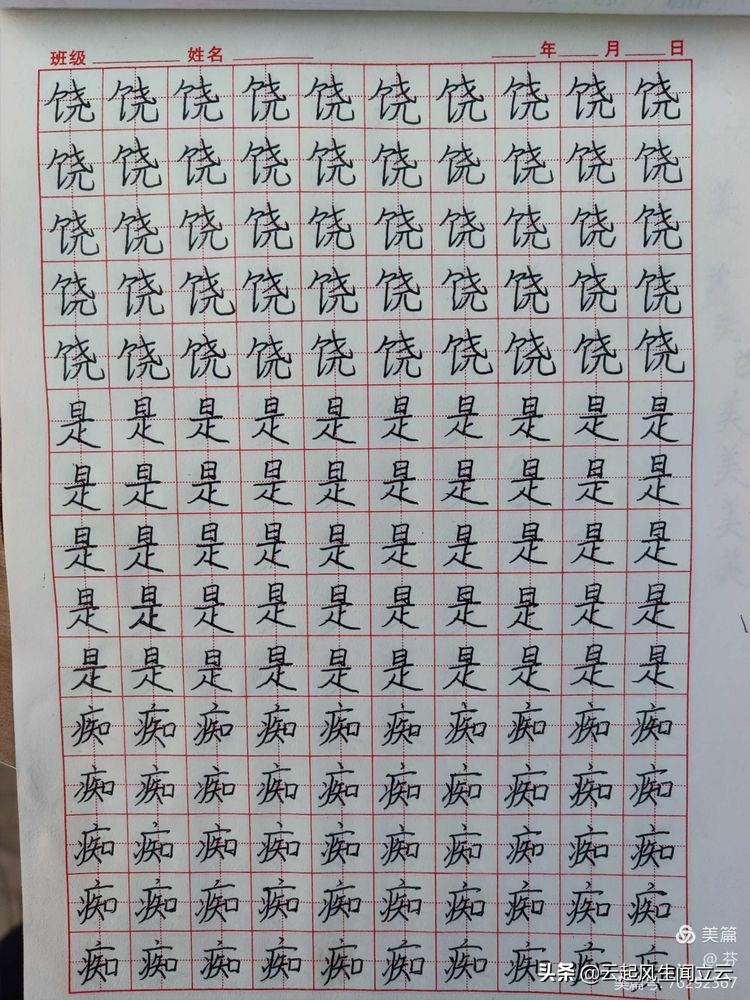 班级 姓名 年 月 日
饶饶饶饶饶饶饶饶饶饶
饶饶饶饶饶饶饶饶饶饶
饶饶饶饶饶饶饶饶饶饶
饶饶饶饶饶饶饶饶饶饶
饶饶饶饶饶饶饶饶饶饶
是是是是是是是是是是
是是是是是是是是是是
是是是是是是是是是是
是是是是是是是是是是
是是是是是是是是是是
痴痴痴痴痴痴痴痴痴痴
痴痴痴痴痴痴痴痴痴痴
痴痴痴痴痴痴痴痴痴痴
痴痴痴痴痴痴痴痴痴痴
痴痴痴痴痴痴痴痴痴痴
美篇
@芬
头条 @云起风生闻立云
美篇号 76252367